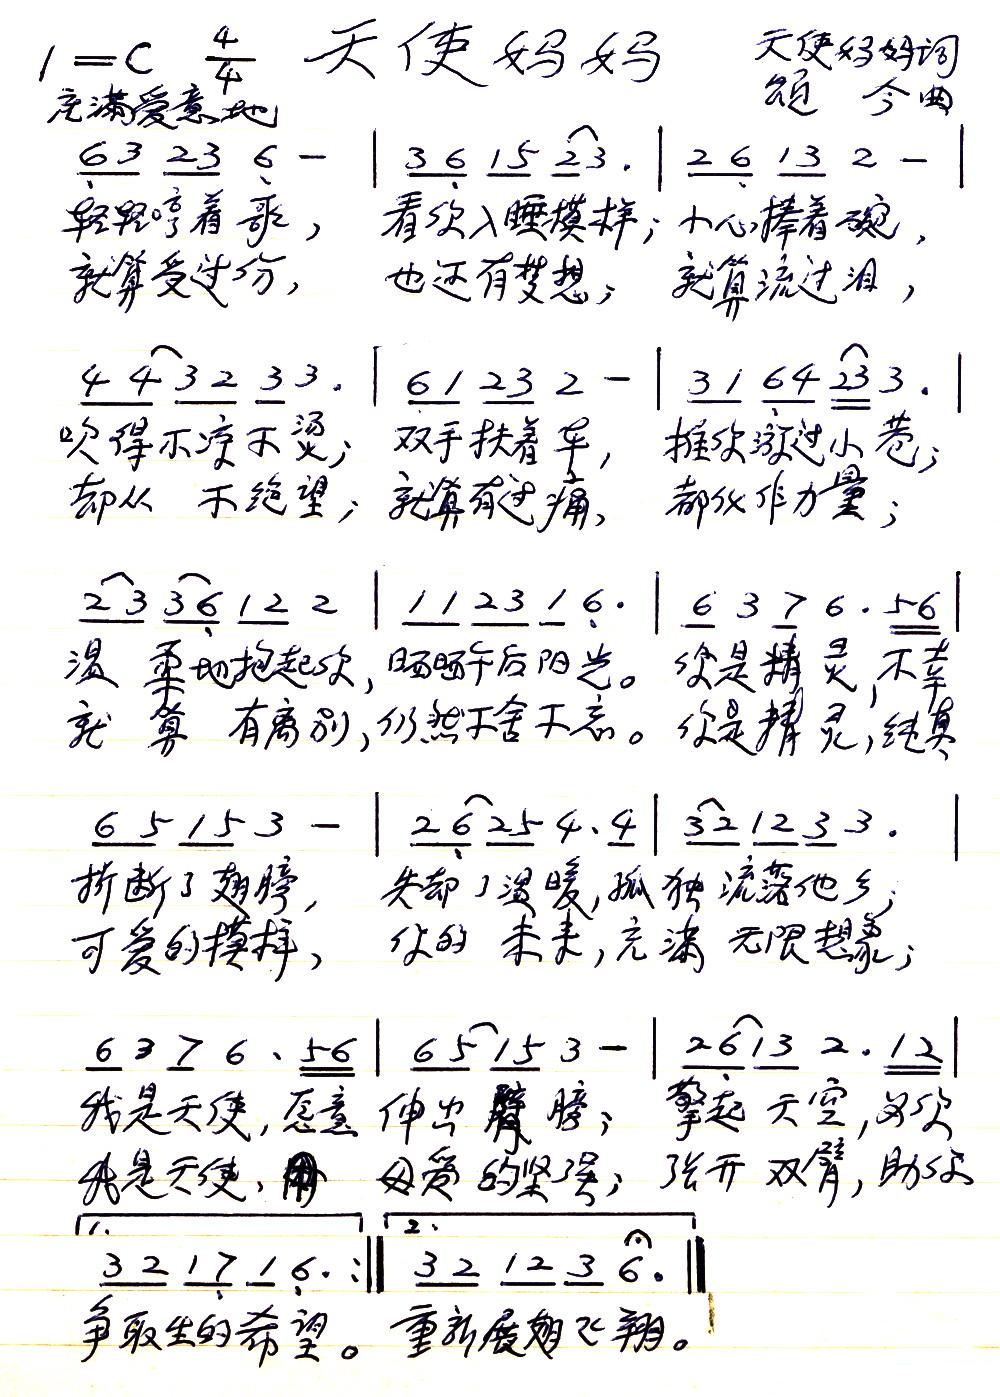 1=C 4/4 天使妈妈 天使妈妈词
充满爱意地 颂今曲
63 23 6 - | 36 15 23. | 26 13 2 - |
轻轻哼着歌, 看你入睡模样; 小心捧着碗,
就算受过伤, 也还有梦想; 就算流过泪,
44 32 33. | 61 23 2 - | 31 64 23 3. |
吹得不凉不烫; 双手扶着车, 推你 过小巷;
却从 不绝望; 就算有过痛, 都化作力量;
23 36 12 2 | 11 23 1 6. | 6 3 7 6. 56 |
温 柔地抱起你, 晒晒午后阳光。 你是精灵, 不幸
就 算 有离别, 仍然不舍不忘。 你是精灵, 纯真
65 15 3 - | 26 25 4. 4 | 32 12 3 3. |
折断了翅膀, 失却了温暖, 孤独流落他乡;
可爱的模样, 你的 未来, 充满 无限想象;
6 3 7 6. 56 | 65 15 3 - | 26 13 2. 12 |
我是天使, 愿意 伸出臂膀; 擎起天空, 为你
我是天使, 用 母爱的坚强; 张开双臂, 助你
1. 2.
32 17 1 6. :‖ 32 12 3 6. ‖
争取生的希望。 重新展翅飞翔。